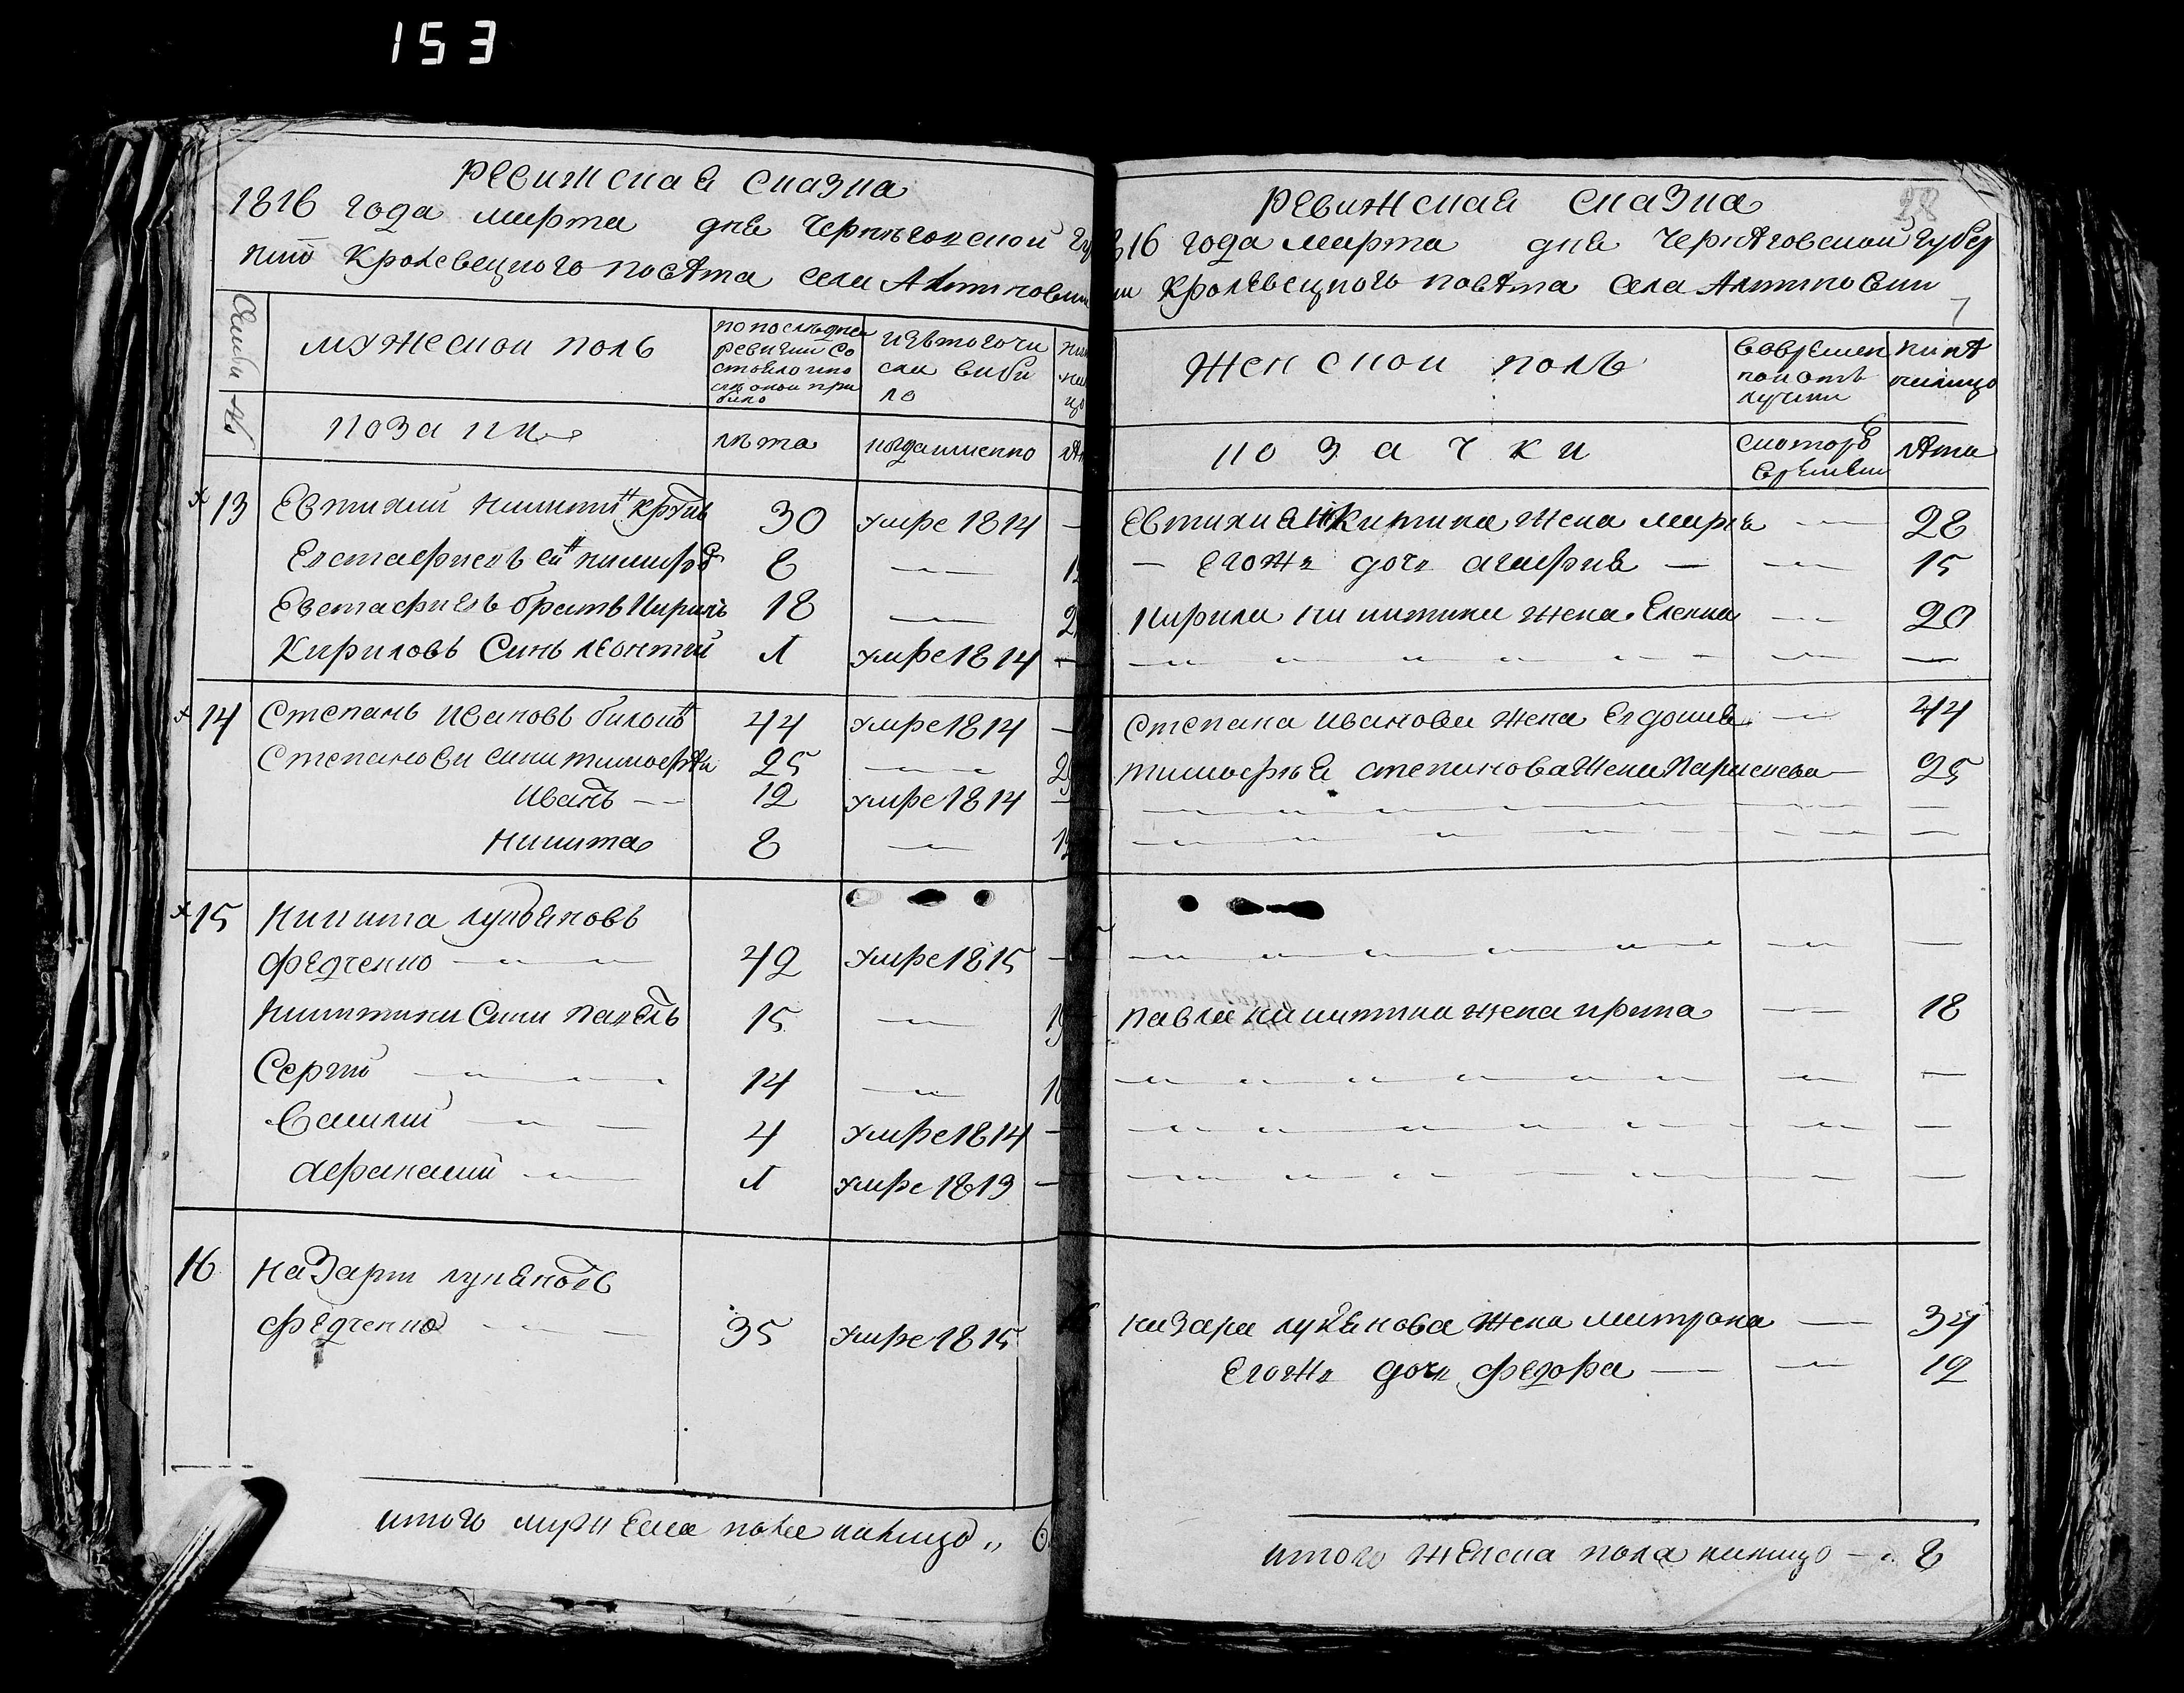 153
Ревижская сказка
1816 года марта дня Черниговской гу
нии Кролевецкого повѣта села Алтиновки
Семьи
№
мужеской полъ
по последней
ревизии со
стояло и по
слѣ оной при
было
изъ того чи
сла выбы
ло
козачки
лѣта
когда именно
13 Евтихий Никитинъ 30 умре 1814 —
Евстафиевъ 8 —
Евстафиевъ братъ Кирилъ 18 —
Кириловъ Синъ леонтий 1 умре 1814 —
14 Степанъ Ивановъ 44 умре 1814 —
Степанови сини тимофѣй 25 — —
Иванъ — 12 умре 1814 —
Никита 8 —
15 Никита лукьяновъ
Федченко — 42 умре 1815 —
Никитини Сини Павелъ 15 — 19
Сергий — 14 — 18
Василий — 4 умре 1814 —
Афанасий — 1 умре 1813 —
16 Назарий лукяновъ
Федченко — 35 умре 1815
итого мужеска пола налицо „ 6
Ревижская сказка
28
816 года марта дня Чернѣговской губер
нии Кролевецкого повѣта села Алтиновки
7
женской полъ
во времен
ной отъ
лучки
нинѣ
налицо
козачки
с которо
времени
лѣта
Евтихия Никитина жена Маря — 28
— егожъ дочъ агафия — — 15
Кирила никитина жена Елена — 20
Степана Иванова жена Евдокия — 44
тимофѣя степанова жена Параскева — 25
Павла никитина жена ирина — 18
назара лукянова жена митрона — 34
егожъ дочъ федора — — 12
итого женска пола налицо — 8